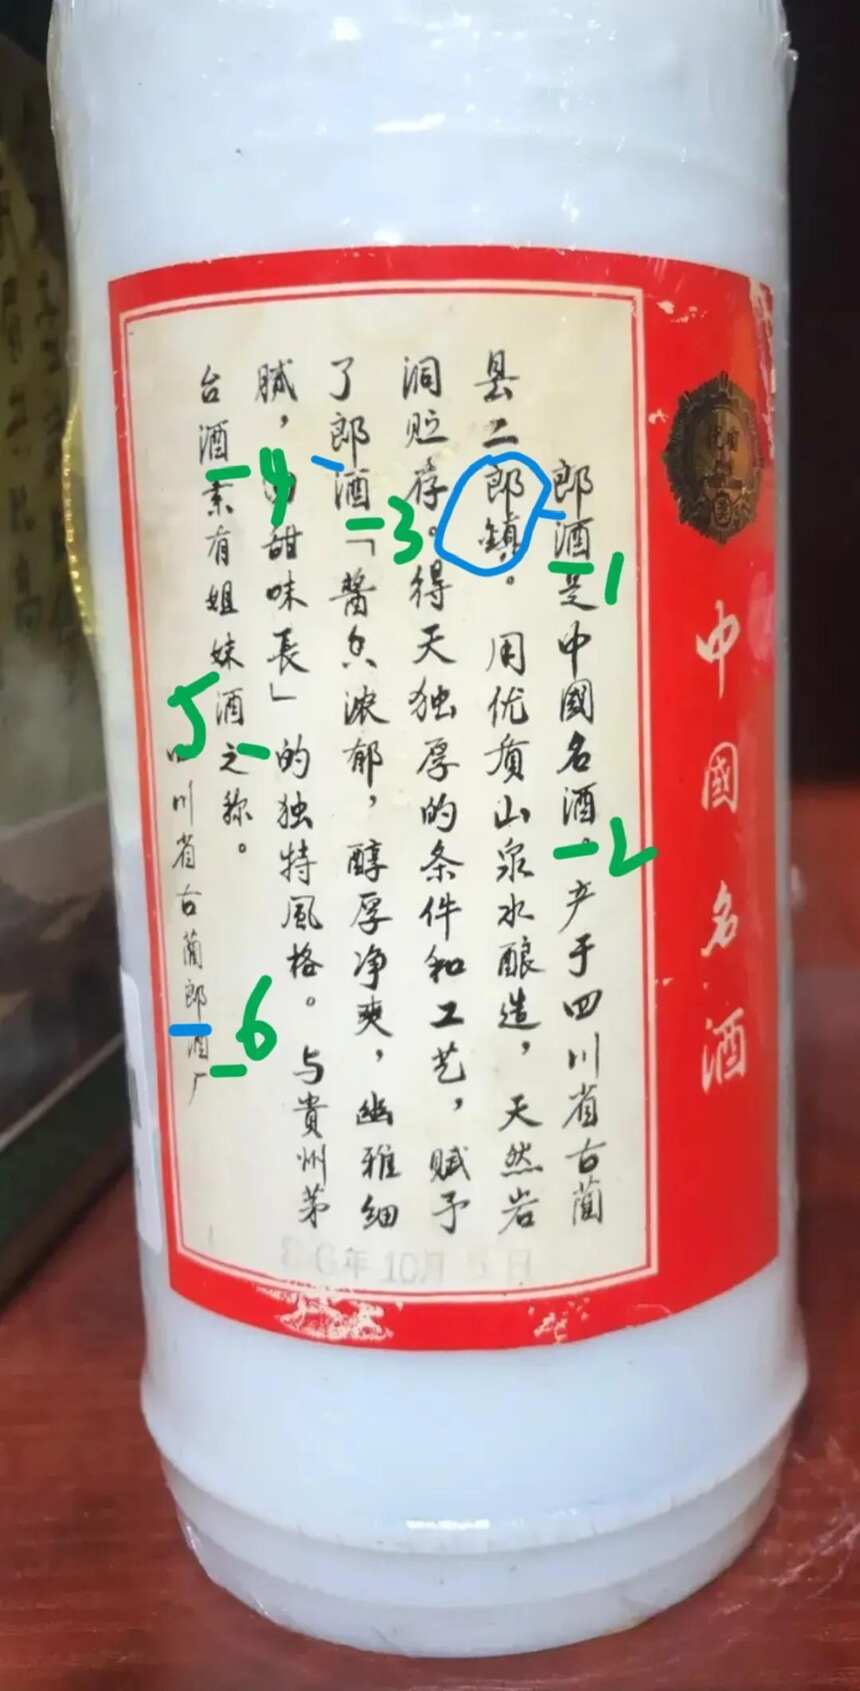 中國名酒
郎酒是中國名酒。产于四川省古藺
县二郎鎮。用优质山泉水酿造，天然岩
洞贮存。得天独厚的条件和工艺，赋予
了郎酒「醬香浓郁，醇厚净爽，幽雅细
腻，回甜味長」的独特風格。与貴州茅
台酒素有姐妹酒之称。
四川省古藺郎酒厂
年10月5日
1
2
3
4
5
6